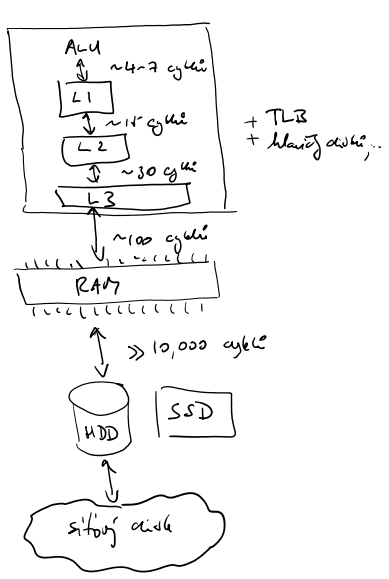 ALU
~4-7 cyklů
L1
~15 cyklů
L2
~30 cyklů
L3
+ TLB
+ hlavičky disků,...
~100 cyklů
RAM
≫ 10,000 cyklů
HDD
SSD
síťový disk